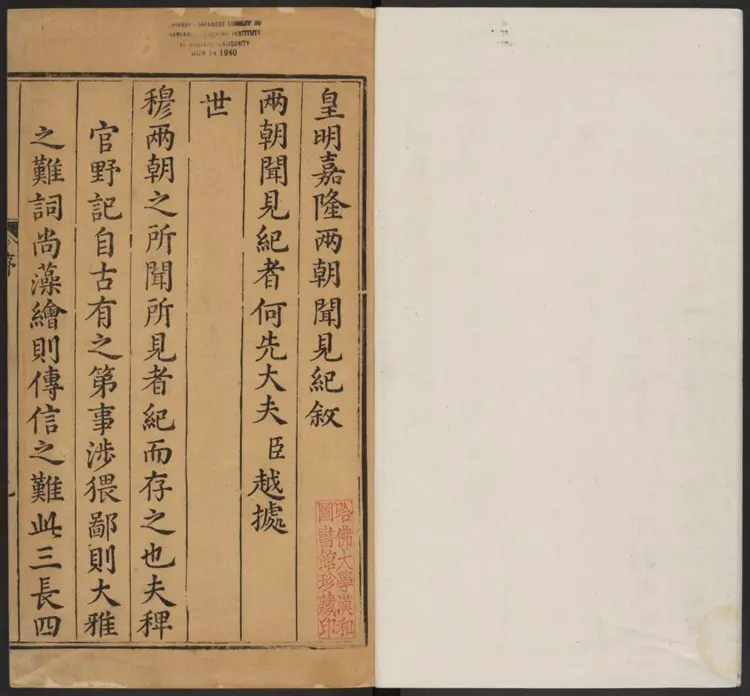 皇明嘉隆兩朝聞見紀敘
兩朝聞見紀者何先大夫臣越據
世
穆兩朝之所聞所見者紀而存之也夫稗
官野記自古有之第事涉猥鄙則大雅
之難詞尚藻繪則傳信之難此三長四
序
哈佛大學漢和
圖書館珍藏印
CHINESE - JAPANESE LIBRARY OF
HARVARD-YENCHING INSTITUTE
AT HARVARD UNIVERSITY
JUN 14 1940